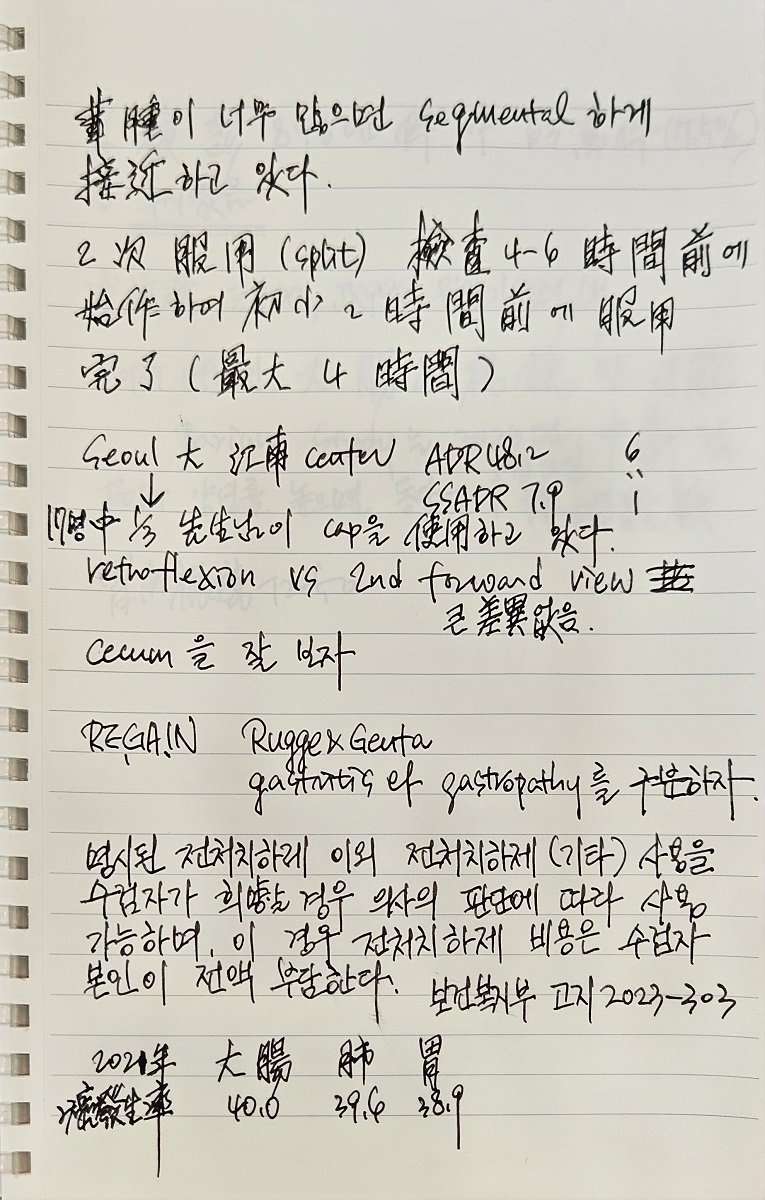 茸腫이 너무 많으면 segmental 하게
接近하고 있다.
2次 服用 (split) 檢査 4-6 時間前에
始作하여 初小 2 時間前에 服用
完了 (最大 4 時間)
Seoul 大 江南 center ADR 48.2 6
↓ SSADR 7.9 1
17명中 先生님이 cap을 使用하고 있다.
retroflexion vs 2nd forward view
큰 差異없음.
cecum을 잘 보자
REGAIN Rugge & Genta
gastritis 와 gastropathy를 구분하자.
명시된 전처치하제 이외 전처치하제 (기타) 사용을
수검자가 희망할 경우 의사의 판단에 따라 사용
가능하며, 이 경우 전처치하제 비용은 수검자
본인이 전액 부담한다. 보건복지부 고지 2023-303
2021年 大腸 肺 胃
癌發生率 40.0 39.6 38.9